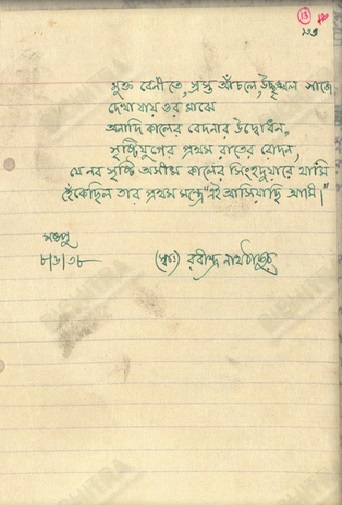 13
১২৩
মুক্ত বেণীতে, স্রস্ত আঁচলে, উচ্ছৃঙ্খল সাজে
দেখা যায় ওর মাঝে
অনাদি কালের বেদনার উদ্বোধন,
সৃষ্টিযুগের প্রথম রাতের রোদন,
যে নব সৃষ্টি অসীম কালের সিংহদুয়ারে থামি
হেঁকেছিল তার প্রথম মন্ত্রে "এই আসিয়াছি আমি।"
মংপু
৮/৬/৩৮
(স্বাঃ) রবীন্দ্রনাথ ঠাকুর
BICHITRA